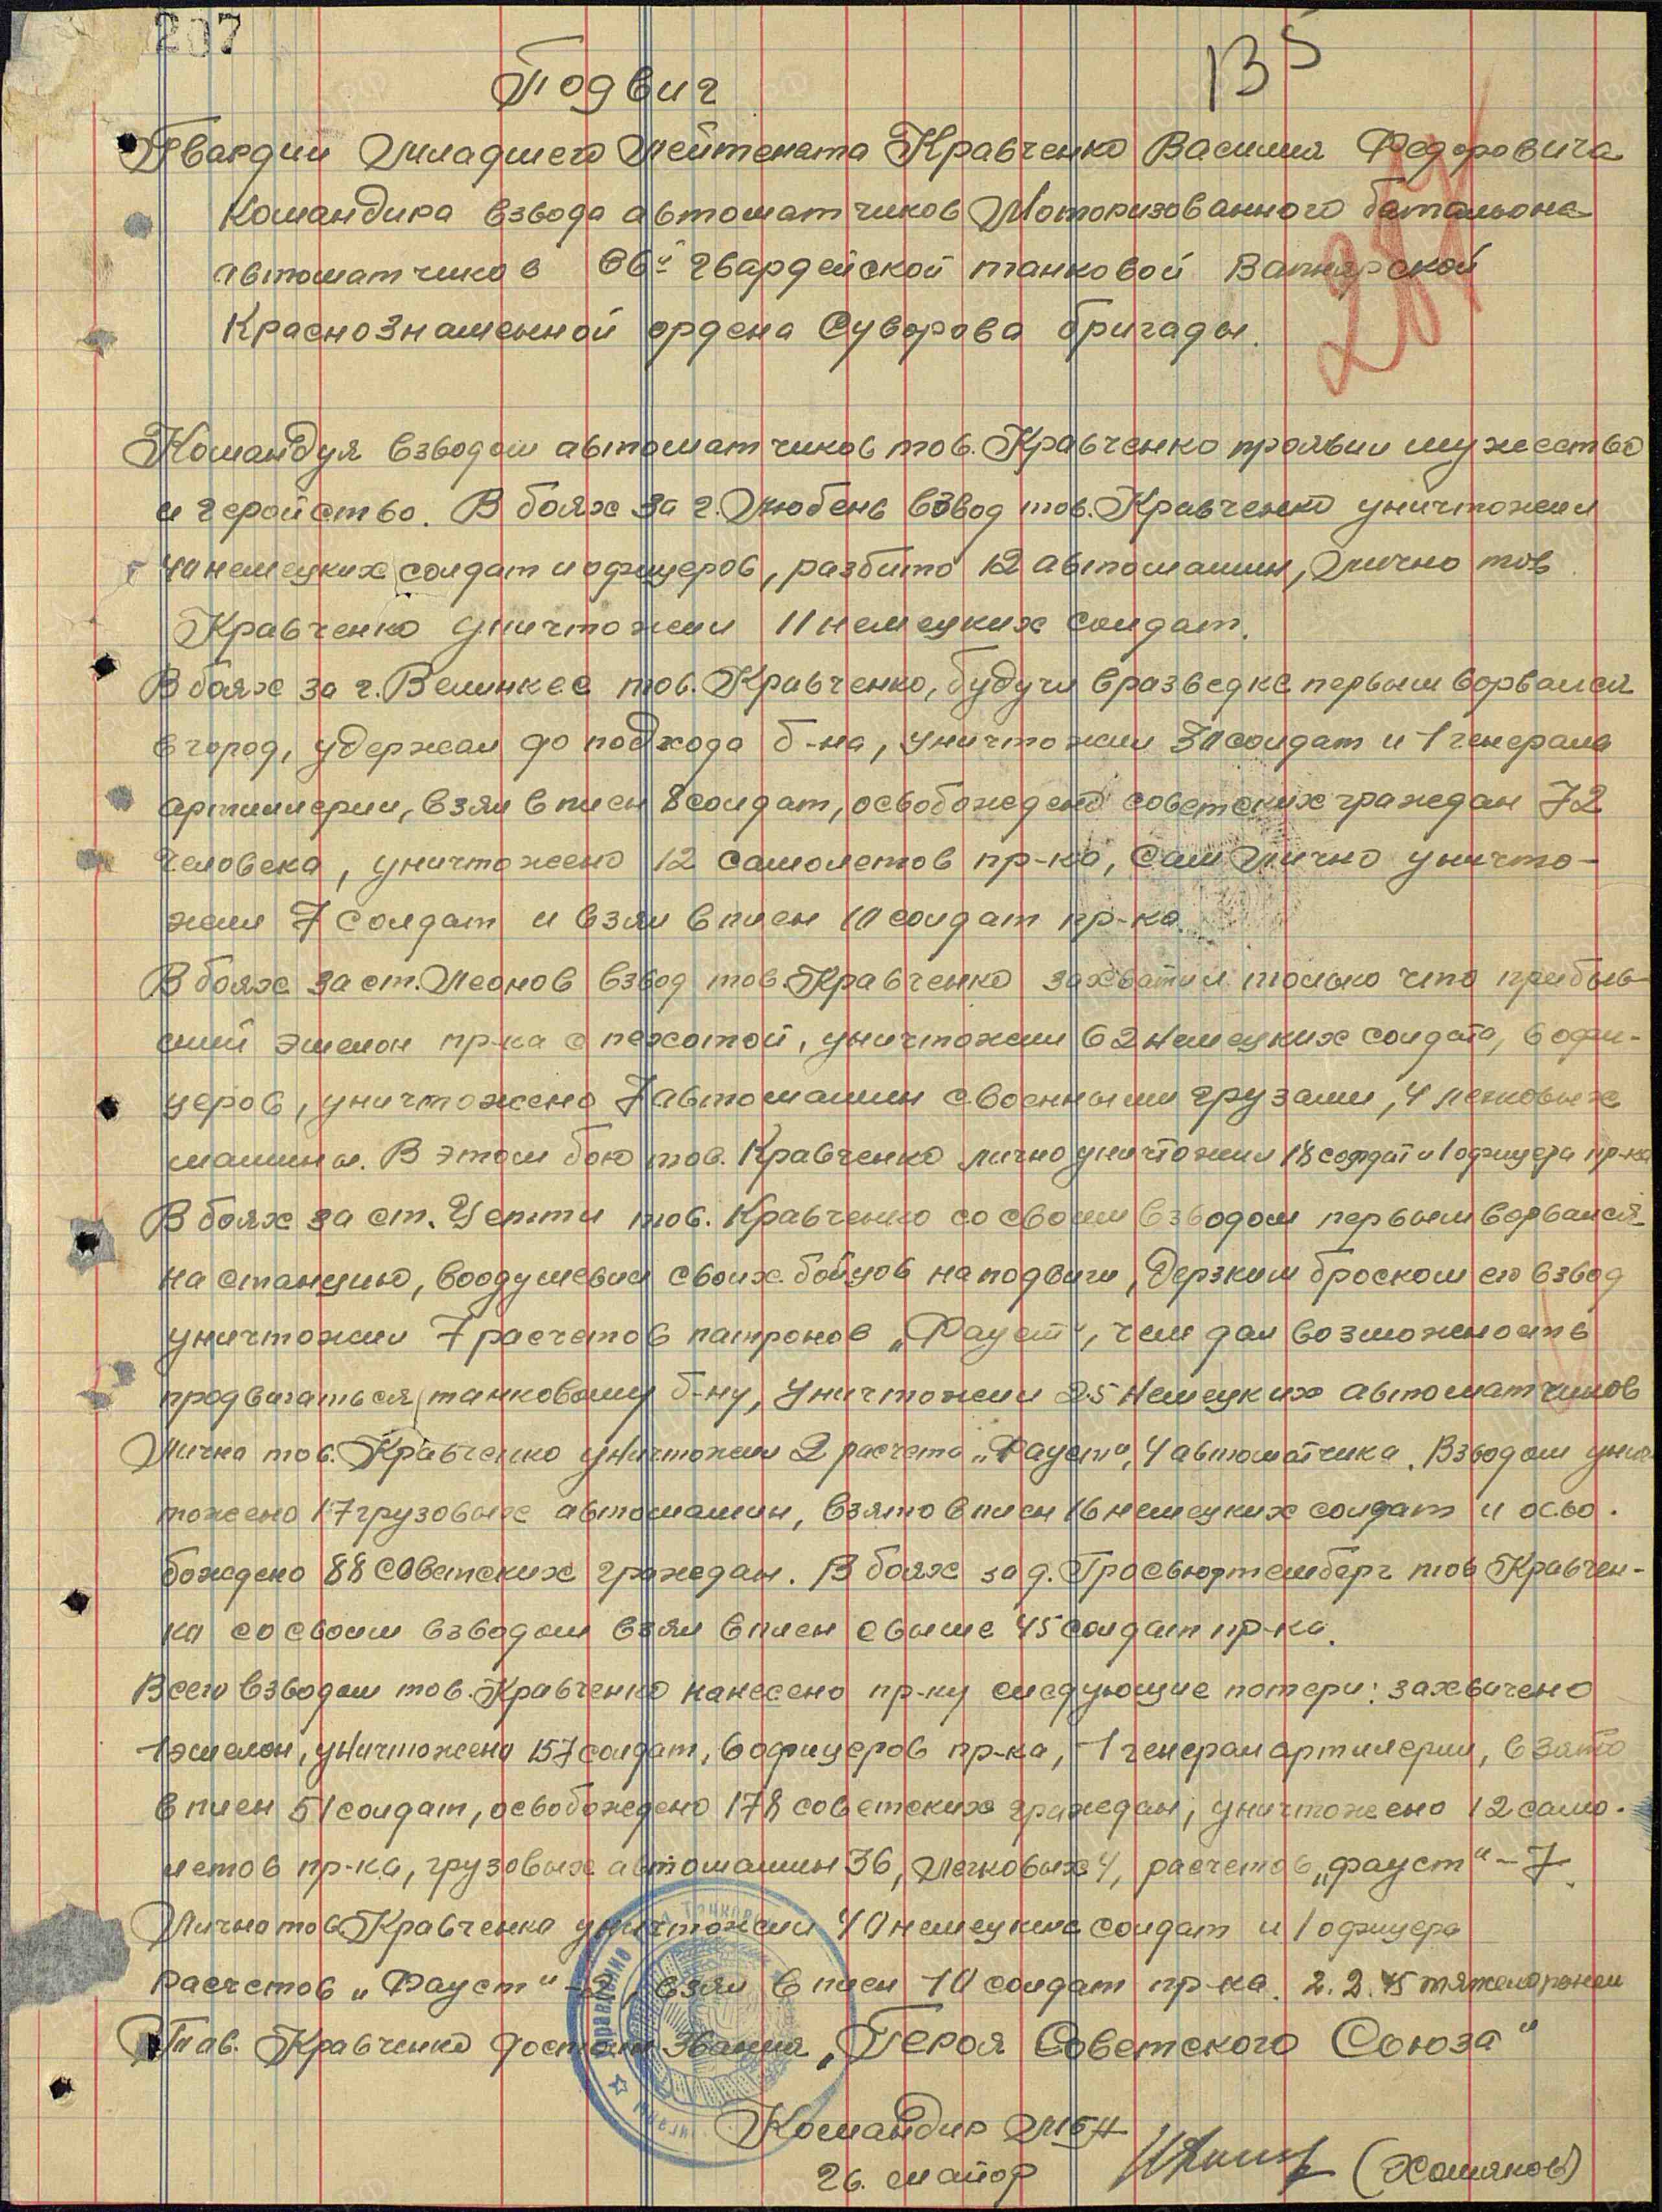 207
135
Подвиг
Гвардии Младшего Лейтената Кравченко Василия Федоровича
Командира взвода автоматчиков Моторизованного батальона
автоматчиков 66й гвардейской танковой Вапнярской
Краснознаменной ордена Суворова бригады.
Командуя взводом автоматчиков тов. Кравченко проявил мужество
и геройство. В боях за г. Любень взвод тов. Кравченко уничтожил
40 немецких солдат и офицеров, разбито 12 автомашин, Лично тов.
Кравченко уничтожил 11 немецких солдат.
В боях за г. Велинкее тов. Кравченко, будучи в разведке первым ворвался
в город, удержал до подхода б-на, уничтожил 30 солдат и 1 генерала
артиллерии, взял в плен 8 солдат, освобождено советских граждан 72
человека, уничтожено 12 самолетов пр-ка, сам лично уничто-
жил 7 солдат и взял в плен 10 солдат пр-ка.
В боях за ст. Леонов взвод тов. Кравченко захватил только что прибыв-
ший эшелон пр-ка с пехотой, уничтожил 62 немецких солдата, 6 офи-
церов, уничтожено 7 автомашин с военными грузами, 4 легковых
машины. В этом бою тов. Кравченко лично уничтожил 18 солдат и 1 офицера пр-ка
В боях за ст. Цетти тов. Кравченко со своим взводом первым ворвался
на станцию, воодушевил своих бойцов на подвиги, Дерзким броском его взвод
уничтожил 7 расчетов патронов „Фауст“, чем дал возможность
продвигаться танковому б-ну, уничтожил 25 немецких автоматчиков
Лично тов. Кравченко уничтожил 2 расчета „Фауст“, 4 автоматчика. Взводом унич
тожено 17 грузовых автомашин, взято в плен 16 немецких солдат и осво.
бождено 88 советских граждан. В боях за д. Гросвюртемберг тов Кравчен-
ка со своим взводом взял в плен свыше 45 солдат пр-ка.
Всего взводом тов. Кравченко нанесено пр-ку следующие потери: захвачено
1 эшелон, уничтожено 157 солдат, 6 офицеров пр-ка, 1 генерал артилерии, взято
в плен 51 солдат, освобождено 178 советских граждан, уничтожено 12 само.
летов пр-ка, грузовых автомашин 36, легковых 4, расчетов „фауст“ – 7.
Лично тов Кравченко уничтожил 40 немецких солдат и 1 офицера
расчетов „Фауст“ – 2, взял в плен 10 солдат пр-ка. 2.2.45 тяжело ранен
Тов. Кравченко достоин звания „Героя Советского Союза“
Командир МБА
гв. майор (Хомяков)